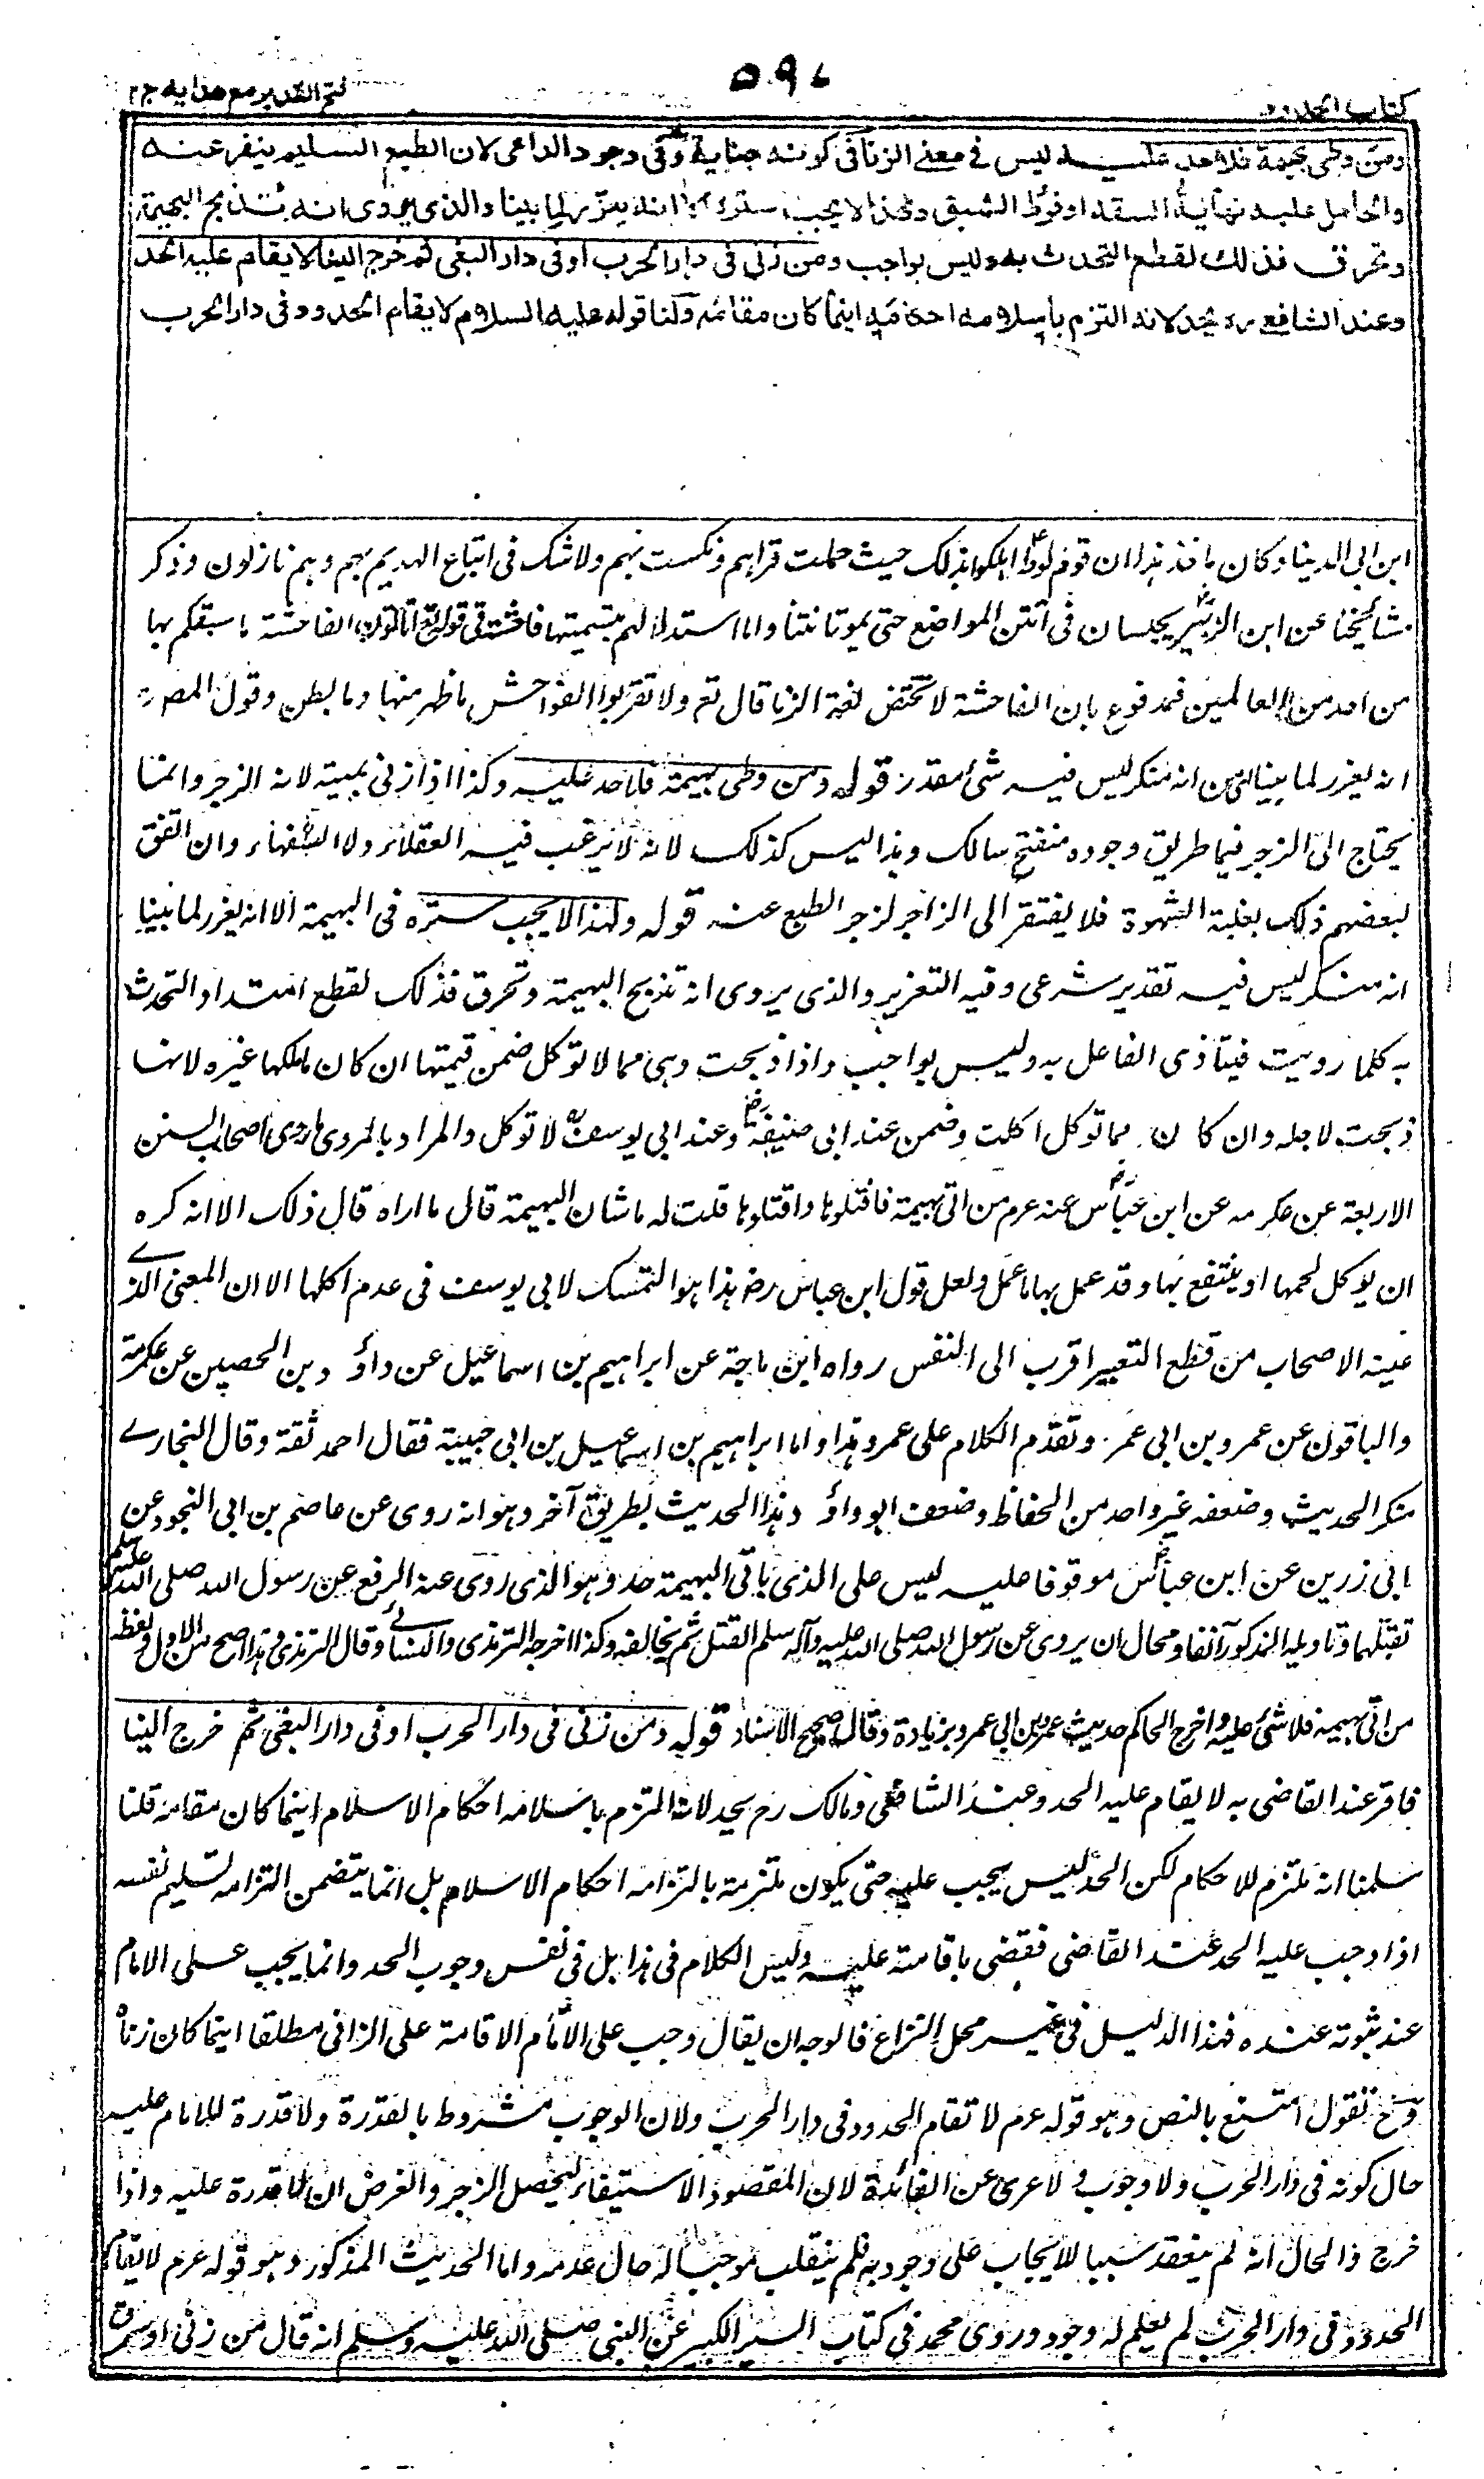 كتاب الحدود
٥٩٧
فتح القدير مع هدايه ج٢
ومن وطى بهيمة فلا حد عليه ليس فى معنى الزنا فى كونه جناية وفى وجود الداعى لان الطبع السليم ينفر عنه
والحامل عليه نهاية السفه او فرط الشبق ولهذا لا يجب ستره الا انه يعزر لما بينا والذى يروى انه تذبح البهيمة
وتحرق فذلك لقطع التحدث به وليس بواجب ومن زنى فى دار الحرب او فى دار البغى ثم خرج الينا لا يقام عليه الحد
وعند الشافعى رہ يحد لانه التزم باسلامه احكامه اينما كان مقامه ولنا قوله عليه السلام لا يقام الحدود فى دار الحرب
ابن ابى الدنيا وكان ماخذ هذا ان قوم لوط اهلكوا بذلك حيث حملت قراهم ونكست بهم ولا شك فى اتباع الهديم بهم وهم نازلون وذكر
مشائخنا عن ابن الزبير يحبسان فى انتن المواضع حتى يموتا نتنا واما استدلالهم بتسميتها فاحشة فى قوله تع اتاتون الفاحشة ما سبقكم بها
من احد من العالمين فمدفوع بان الفاحشة لا تختص لغة الزنا قال تع ولا تقربوا الفواحش ما ظهر منها وما بطن وقول المصر
انه يعزر لما بينا اى من انه منكر ليس فيه شئ مقدر قوله ومن وطى بهيمة فلا حد عليه وكذا اذا زنى بميتة لانه الزجر وانما
يحتاج الى الزجر فيما طريق وجوده منفتح سالك وهذا ليس كذلك لانه لا يرغب فيه العقلاء ولا السفهاء وان اتفق
لبعضهم ذلك بغلبة الشهوة فلا يفتقر الى الزاجر لزجر الطبع عنه قوله ولهذا لا يجب ستره فى البهيمة الا انه يعزر لما بينا
انه منكر ليس فيه تقدير شرعى وفيه التعزير والذى يروى انه تذبح البهيمة وتحرق فذلك لقطع امتداد التحدث
به كلما رويت فيتاذى الفاعل به وليس بواجب واذا ذبحت وهى مما لا توكل ضمن قيمتها ان كان مالكها غيره لانها
ذبحت لاجله وان كان مما توكل اكلت وضمن عند ابى حنيفة رض وعند ابى يوسف رہ لا توكل والمراد بالمروى ما روى اصحاب السنن
الاربعة عن عكرمه عن ابن عباس رض عنه عرم من اتى بهيمة فاقتلوه واقتلوها قلت له ما شان البهيمة قال ما اراه قال ذلك الا انه كره
ان يوكل لحمها او ينتفع بها وقد عمل بها ما عمل ولعل قول ابن عباس رض هذا هو التمسك لابى يوسف فى عدم اكلها الا ان المعنى الذے
عينه الاصحاب من قطع التعيير اقرب الى النفس رواه ابن ماجة عن ابراهيم بن اسماعيل عن داؤد بن الحصين عن عكرمة
والباقون عن عمرو بن ابى عمر وتقدم الكلام على عمرو هذا واما ابراهيم بن اسمعيل بن ابى حبيبة فقال احمد ثقة وقال البخارے
منكر الحديث وضعفه غير واحد من الحفاظ وضعف ابوداؤد هذا الحديث بطريق آخر وهو انه روى عن عاصم بن ابى النجود عن
ابى زرين عن ابن عباس رض موقوفا عليه ليس على الذى ياتى البهيمة حد وهو الذى روى عنه الرفع عن رسول الله صلى الله عليه وسلم
تقبلها وتاويله المذكور آنفا ومحال ان يروى عن رسول الله صلى الله عليه وآله سلم القتل ثم يخالفه وكذا اخرجه الترمذى والنسائے وقال الترمذى وهذا اصح من الاول ولفظه
من اتى بهيمة فلا شئ عليه واخرج الحاكم حديث عمرو بن ابى عمرو بزيادة وقال صحيح الاسناد قوله ومن زنى فى دار الحرب او فى دار البغى ثم خرج الينا
فاقر عند القاضى به لا يقام عليه الحد وعند الشافعى ومالك رح يحد لانه التزم باسلامه احكام الاسلام اينما كان مقامه قلنا
سلمنا انه ملتزم للاحكام لكن الحد ليس يجب عليه حتى يكون ملتزمة بالتزامه احكام الاسلام بل انما يتضمن التزامه تسليم نفسه
اذا وجب عليه الحد عند القاضى فقضى باقامته عليه وليس الكلام فى هذا بل فى نفس وجوب الحد وانما يجب على الامام
عند ثبوته عنده فهذا الدليل فى غير محل النزاع فالوجه ان يقال وجب على الامام الاقامة على الزانى مطلقا اينما كان زناه
وح نقول امتنع بالنص وهو قوله عرم لا تقام الحدود فى دار الحرب ولان الوجوب مشروط بالقدرة ولا قدرة للامام عليه
حال كونه فى دار الحرب ولا وجوب والا عرى عن الفائدة لان المقصود الاستيفاء ليحصل الزجر والغرض ان لا قدرة عليه واذا
خرج ذا الحال انه لم ينعقد سببا للايجاب على وجوبه فلم ينقلب موجبا له حال عدمه واما الحديث المذكور وهو قوله عرم لا يقام
الحدود فى دار الحرب لم يعلم له وجود وروى محمد فى كتاب السير الكبير عن النبى صلى الله عليه وسلم انه قال من زنى او سرق